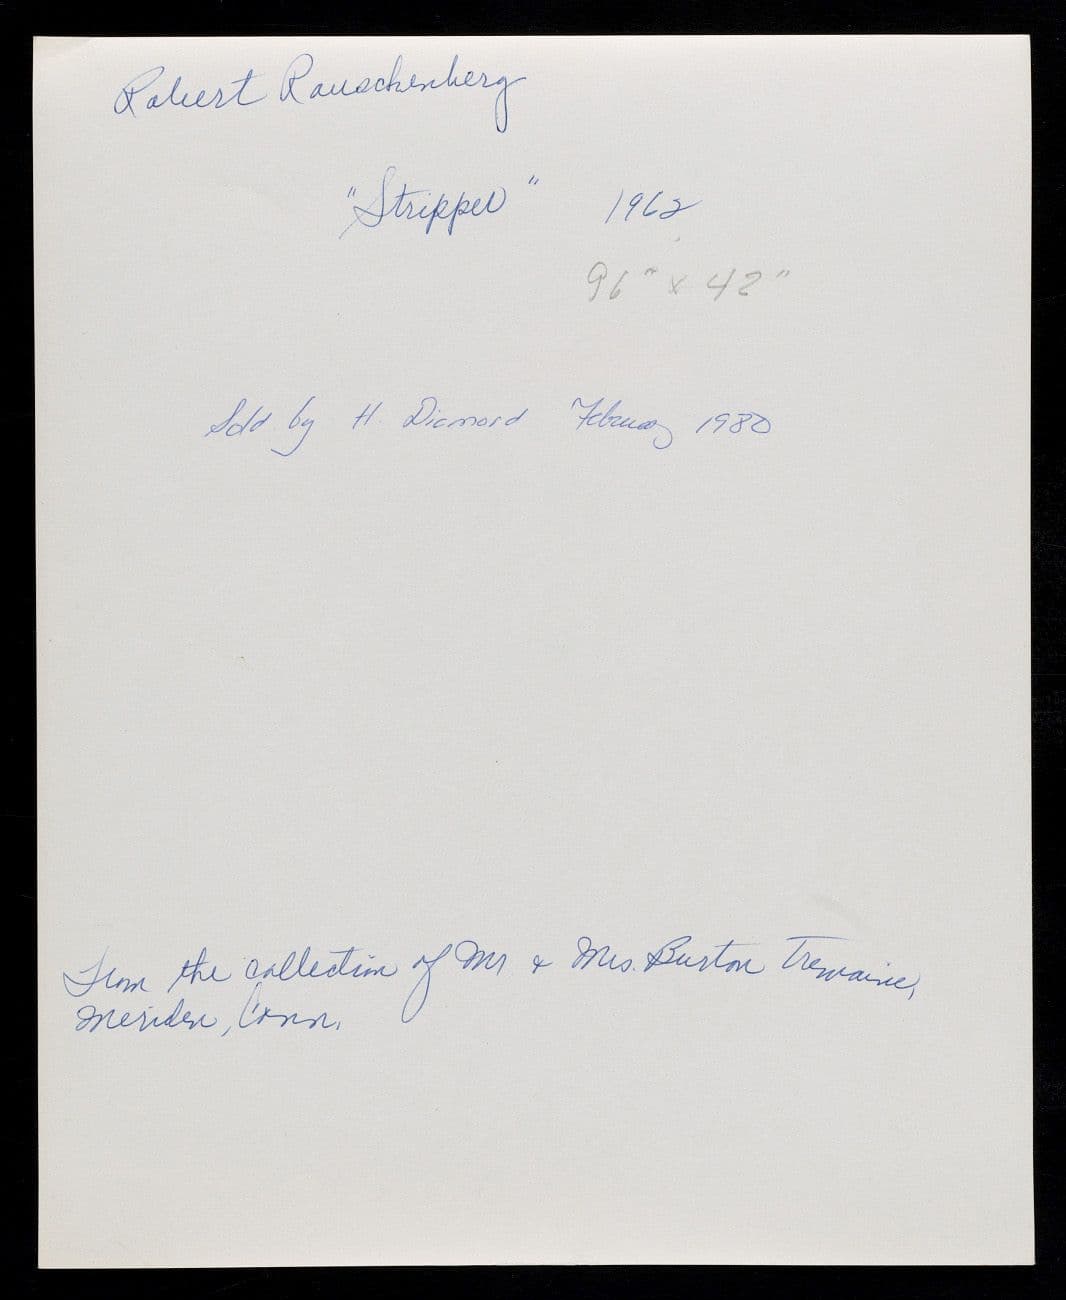 Robert Rauschenberg
"Stripper" 1962
96" x 42"
Sold by H. Diamond February 1980
From the collection of Mr & Mrs. Burton Tremaine,
Meriden, Conn.